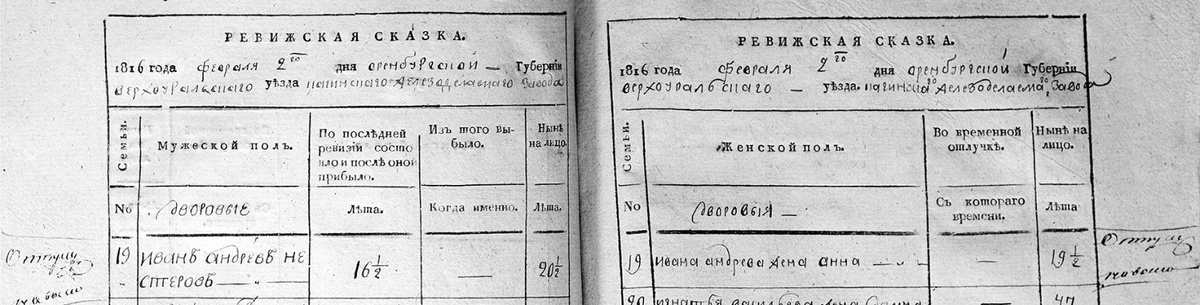 РЕВИЖСКАЯ СКАЗКА.
1816 года февраля 2го дня оренбургской — Губерніи
верхоуральскаго уѣзда кагинскаго железоделаемаго завода
Семьи.
Мужеской полъ.
По послѣдней ревизіи состо
яло и послѣ оной прибыло.
Изъ того вы-
было.
Нынѣ
на лицо.
No дворовые Лѣта. Когда именно. Лѣта.
19 Иванъ андреевъ не 16½ — 20½
стеровъ —
РЕВИЖСКАЯ СКАЗКА.
1816 года февраля 2го дня оренбургской Губерніи
верхоуральскаго — уѣзда. кагинскаго завода
Семьи.
Женской полъ.
Во временной
отлучкѣ.
Нынѣ на
лицо.
No дворовыя — Съ котораго
времени. Лѣта
19 Ивана андреева жена анна — — 19½